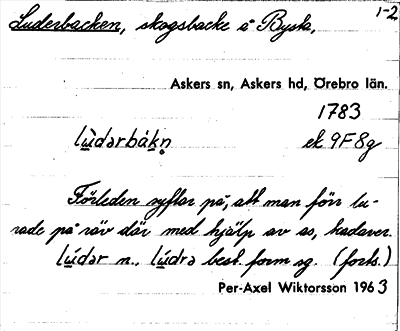 Luderbacken, skogsbacke å Byska, 1-2
Askers sn, Askers hd, Örebro län.
1783
lùdərbàkn̥ ek 9F8g
Förleden syftar på, att man förr lu-
rade på räv där med hjälp av as, kadaver.
lúdər n., lúdrə best. form sg. (forts.)
Per-Axel Wiktorsson 1963